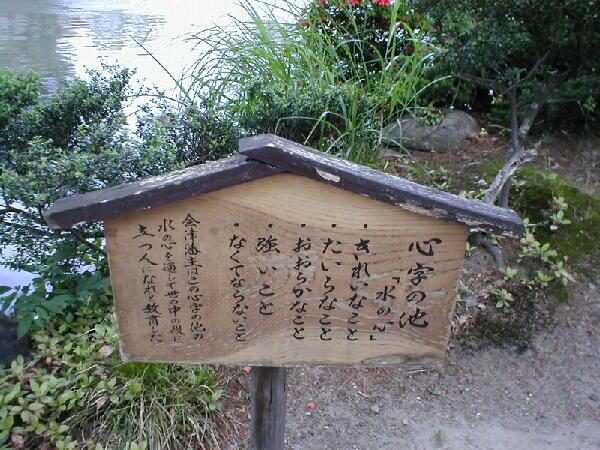 心字の池
「水の心」
・きれいなこと
・たいらなこと
・おおらかなこと
・強いこと
・なくてならないこと
会津藩主はこの心字の池の
水の心を通して世の中の役に
立つ人になれと教育した